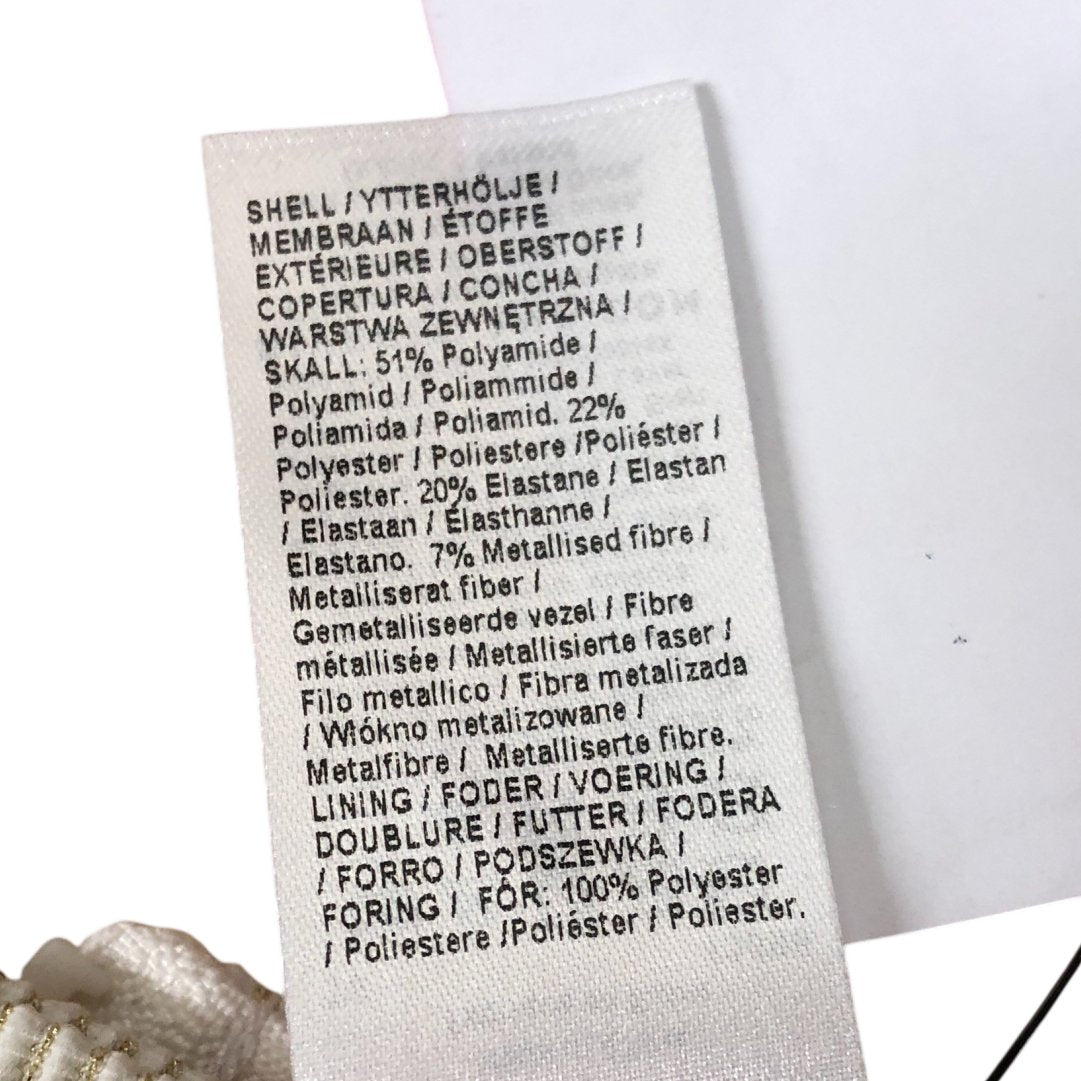 SHELL / YTTERHÖLJE /
MEMBRAAN / ÉTOFFE
EXTÉRIEURE / OBERSTOFF /
COPERTURA / CONCHA /
WARSTWA ZEWNĘTRZNA /
SKALL: 51% Polyamide /
Polyamid / Poliammide /
Poliamida / Poliamid. 22%
Polyester / Poliestere /Poliéster /
Poliester. 20% Elastane / Elastan
/ Elastaan / Élasthanne /
Elastano. 7% Metallised fibre /
Metalliserat fiber /
Gemetalliseerde vezel / Fibre
métallisée / Metallisierte faser /
Filo metallico / Fibra metalizada
/ Włókno metalizowane /
Metalfibre / Metalliserte fibre.
LINING / FODER / VOERING /
DOUBLURE / FUTTER / FODERA
/ FORRO / PODSZEWKA /
FORING / FÓR: 100% Polyester
/ Poliestere /Poliéster / Poliester.